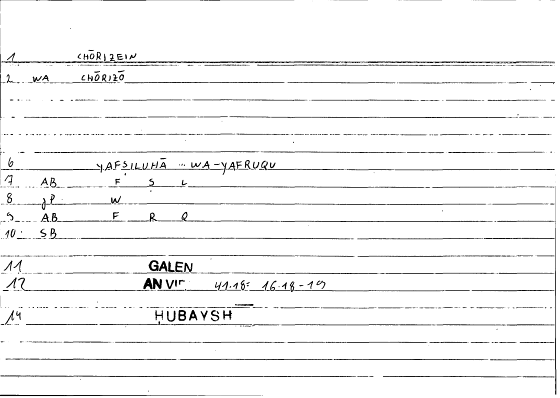 1 CHŌRIZEIN
2 WA CHŌRIZŌ
6 YAFṢILUHĀ ... WA-YAFRUQU
7 AB F Ṣ L
8 JP W
9 AB F R Q
10 SB
11 GALEN
12 AN VIR 41.18: 16.18-19
14 ḤUBAYSH